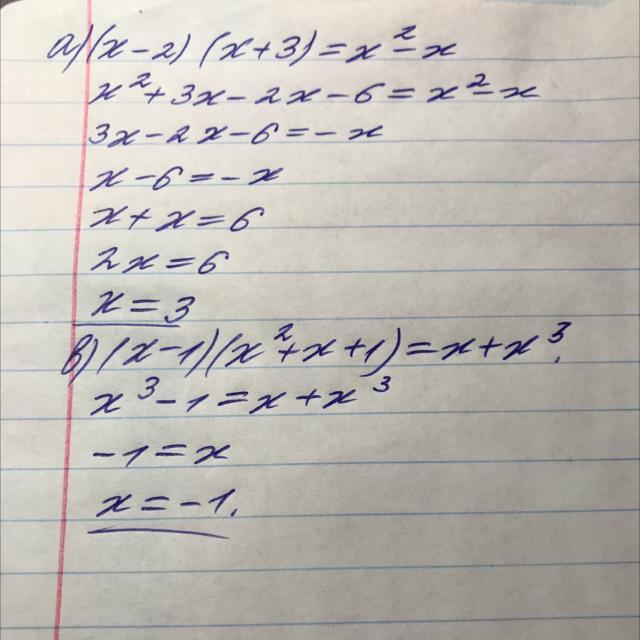 а) (x-2) (x+3) = x² - x
x² + 3x - 2x - 6 = x² - x
3x - 2x - 6 = - x
x - 6 = - x
x + x = 6
2x = 6
x = 3
в) (x-1)(x² + x + 1) = x + x³.
x³ - 1 = x + x³
-1 = x
x = -1.